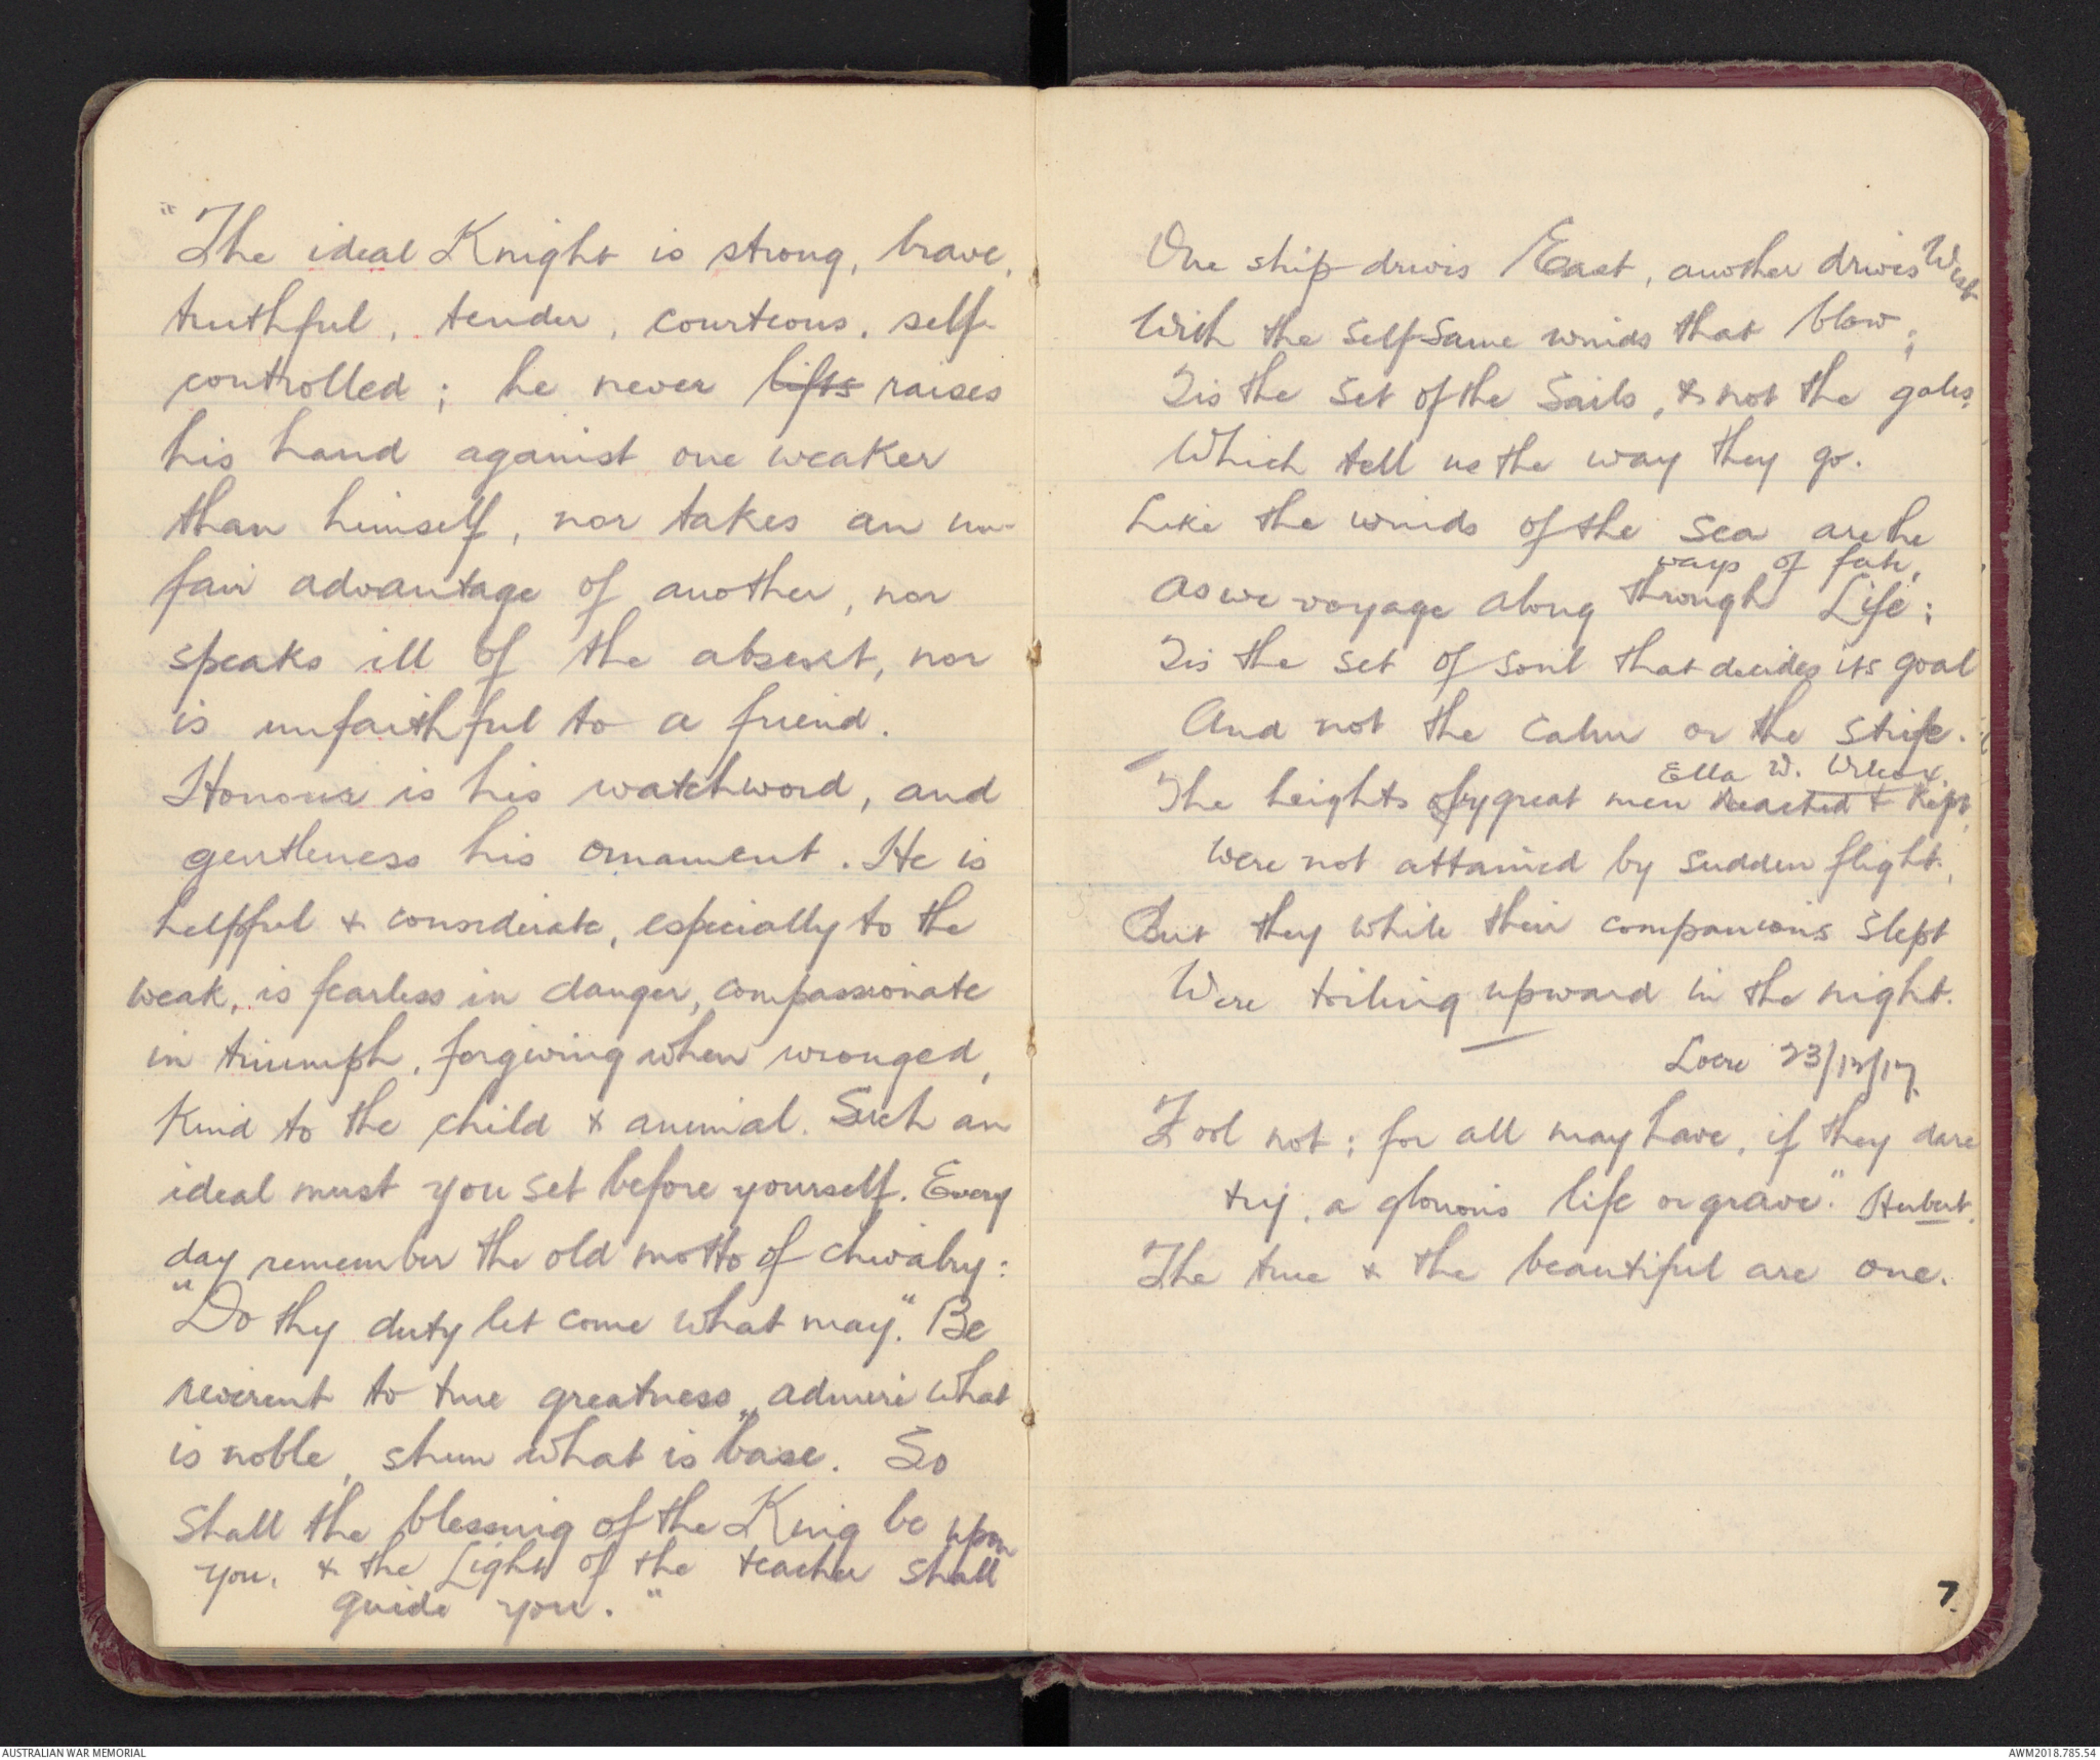 "The ideal Knight is strong, brave,
truthful, tender, courteous, self-
controlled; he never lifts raises
his hand against one weaker
than himself, nor takes an un-
fair advantage of another, nor
speaks ill of the absent, nor
is unfaithful to a friend.
Honour is his watchword, and
gentleness his ornament. He is
helpful & considerate, especially to the
weak, is fearless in danger, compassionate
in triumph, forgiving when wronged,
Kind to the child & animal. Such an
ideal must you set before yourself. Every
day remember the old motto of chivalry:
"Do thy duty let come what may." Be
reverent to true greatness, admire what
is noble, shun what is base. So
shall the blessing of the King be upon
you, & the Light of the teacher shall
guide you."
One ship drives East, another drives West
With the self-same winds that blow;
Tis the set of the Sails, & not the gales,
Which tell us the way they go.
Like the winds of the sea are the
ways of fate,
As we voyage along through Life;
Tis the set of soul that decides its goal
And not the calm or the strife.
Ella W. Wilcox.
The heights by great men reached & kept,
Were not attained by sudden flight,
But they while their companions slept
Were toiling upward in the night.
Locre 23/12/17.
Fool not; for all may have, if they dare
try, a glorious life or grave." Herbert.
The true & the beautiful are one.
7.
AUSTRALIAN WAR MEMORIAL
AWM2018.785.54